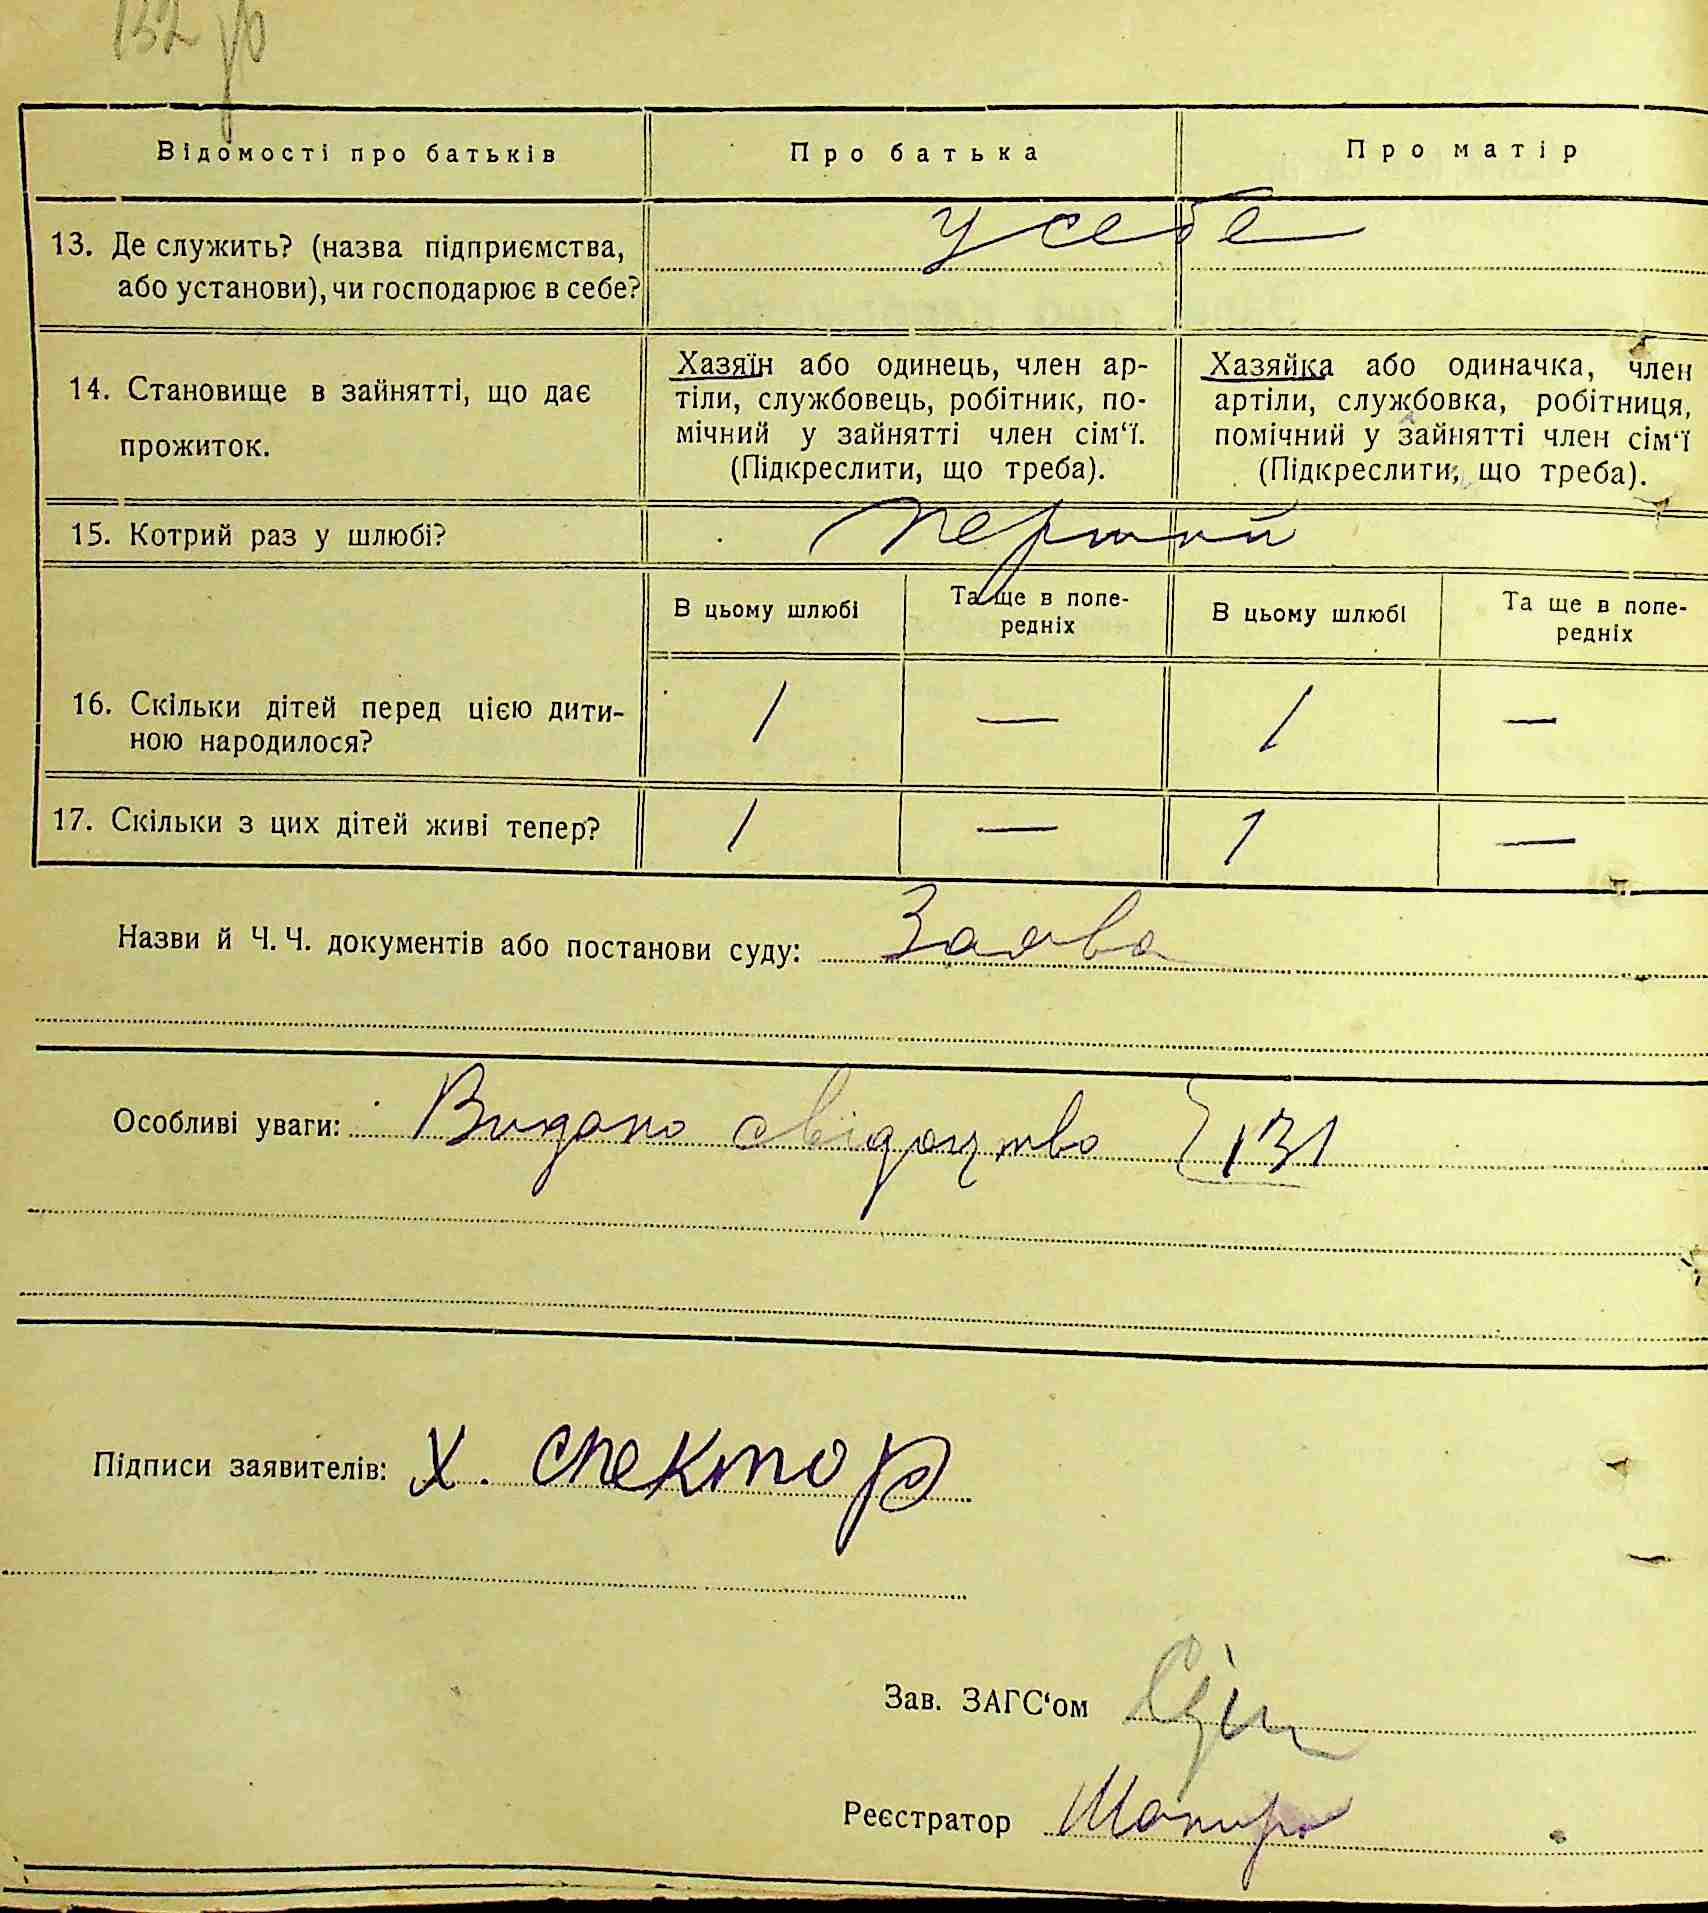 132
Відомості про батьків
Про батька
Про матір
13. Де служить? (назва підприємства,
або установи), чи господарює в себе?
у себе
14. Становище в зайнятті, що дає
прожиток.
Хазяїн або одинець, член ар-
тіли, службовець, робітник, по-
мічний у зайнятті член сім‘ї.
(Підкреслити, що треба).
Хазяйка або одиначка, член
артіли, службовка, робітниця,
помічний у зайнятті член сім‘ї
(Підкреслити, що треба).
15. Котрий раз у шлюбі?
перший
В цьому шлюбі
Та ще в попе-
редніх
В цьому шлюбі
Та ще в попе-
редніх
16. Скільки дітей перед цією дити-
ною народилося?
1 — 1 —
17. Скільки з цих дітей живі тепер?
1 — 1 —
Назви й Ч. Ч. документів або постанови суду: Заява
Особливі уваги: Видано свідоцтво 131
Підписи заявителів: Х. спектор
Зав. ЗАГС‘ом
Реєстратор Шапиро